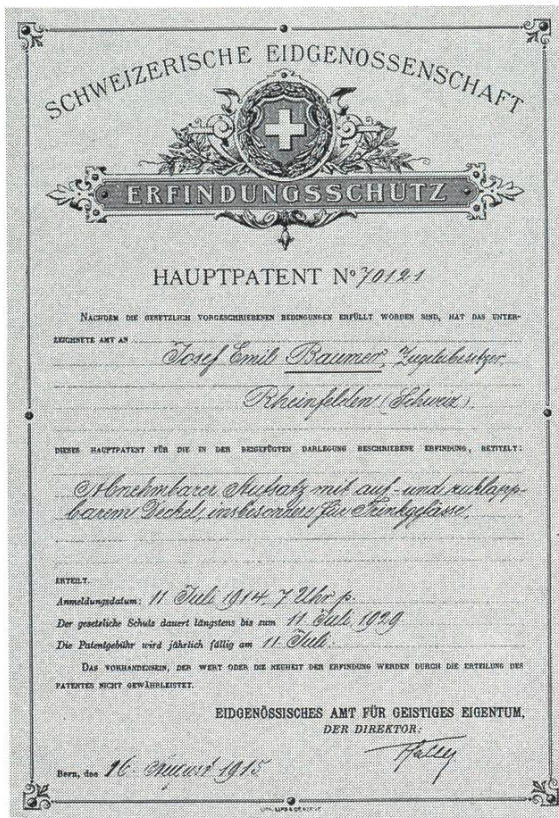 SCHWEIZERISCHE EIDGENOSSENSCHAFT
ERFINDUNGSSCHUTZ
HAUPTPATENT No 70121
NACHDEM DIE GESETZLICH VORGESCHRIEBENEN BEDINGUNGEN ERFÜLLT WORDEN SIND, HAT DAS UNTER-
ZEICHNETE AMT AN
Josef Emil Baumer,
Rheinfelden (Schweiz).
DIESES HAUPTPATENT FÜR DIE IN DER BEIGEFÜGTEN DARLEGUNG BESCHRIEBENE ERFINDUNG, BETITELT:
Abnehmbarer Aufsatz mit auf- und zuklapp-
barem Deckel, insbesondere für Trinkgefässe.
ERTEILT.
Anmeldungsdatum: 11 Juli 1914, 7 Uhr p.
Der gesetzliche Schutz dauert längstens bis zum 11 Juli 1929
Die Patentgebühr wird jährlich fällig am 11 Juli.
DAS VORHANDENSEIN, DER WERT ODER DIE NEUHEIT DER ERFINDUNG WERDEN DURCH DIE ERTEILUNG DES
PATENTES NICHT GEWÄHRLEISTET.
EIDGENÖSSISCHES AMT FÜR GEISTIGES EIGENTUM,
DER DIREKTOR:
Bern, den 16. August 1915